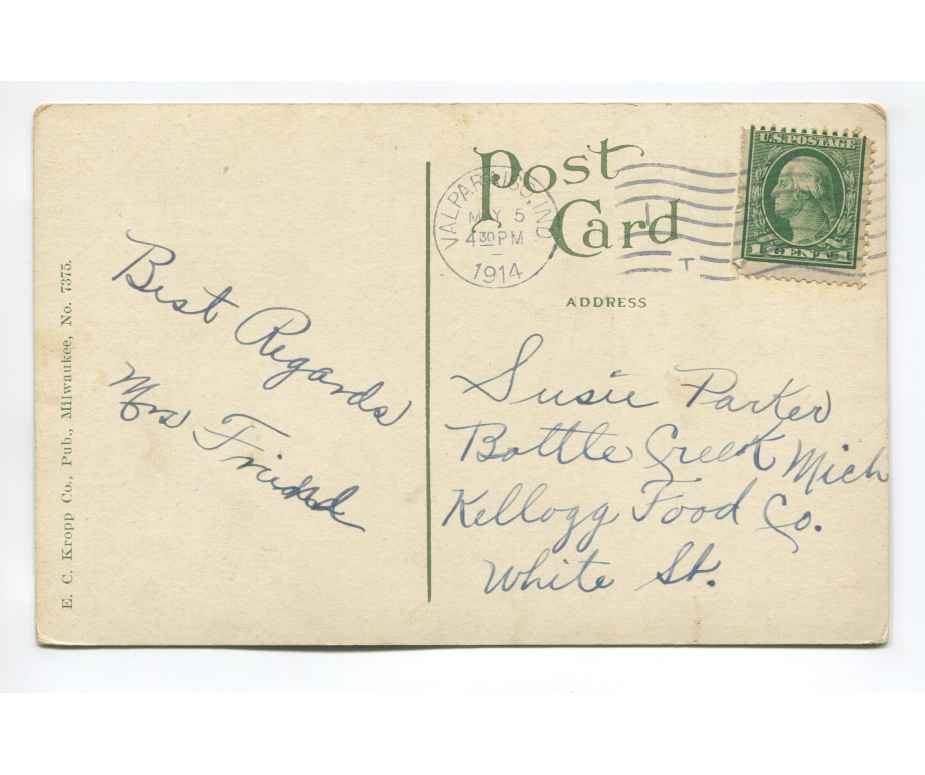 Post
Card
U.S. POSTAGE
1 CENT 1
VALPARAISO, IND
MAY 5
4 30 PM
1914
T
ADDRESS
Best Regards
Mrs Friend
Susie Parker
Battle Creek Mich
Kellogg Food Co.
White St.
E. C. Kropp Co., Pub., Milwaukee, No. 7375.